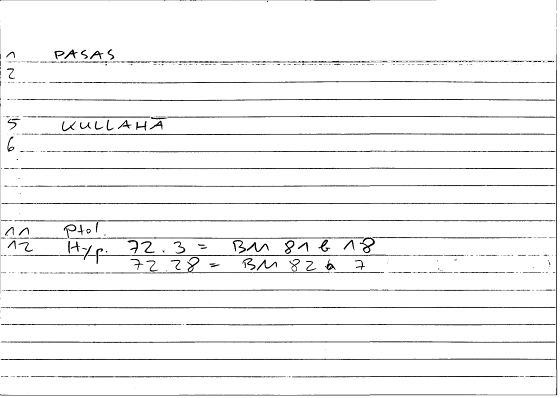 1 PASAS
2
5 KULLAHĀ
6
11 Ptol.
12 Hyp. 72.3 = BM 81 b 18
72 28 = BM 82 a 7